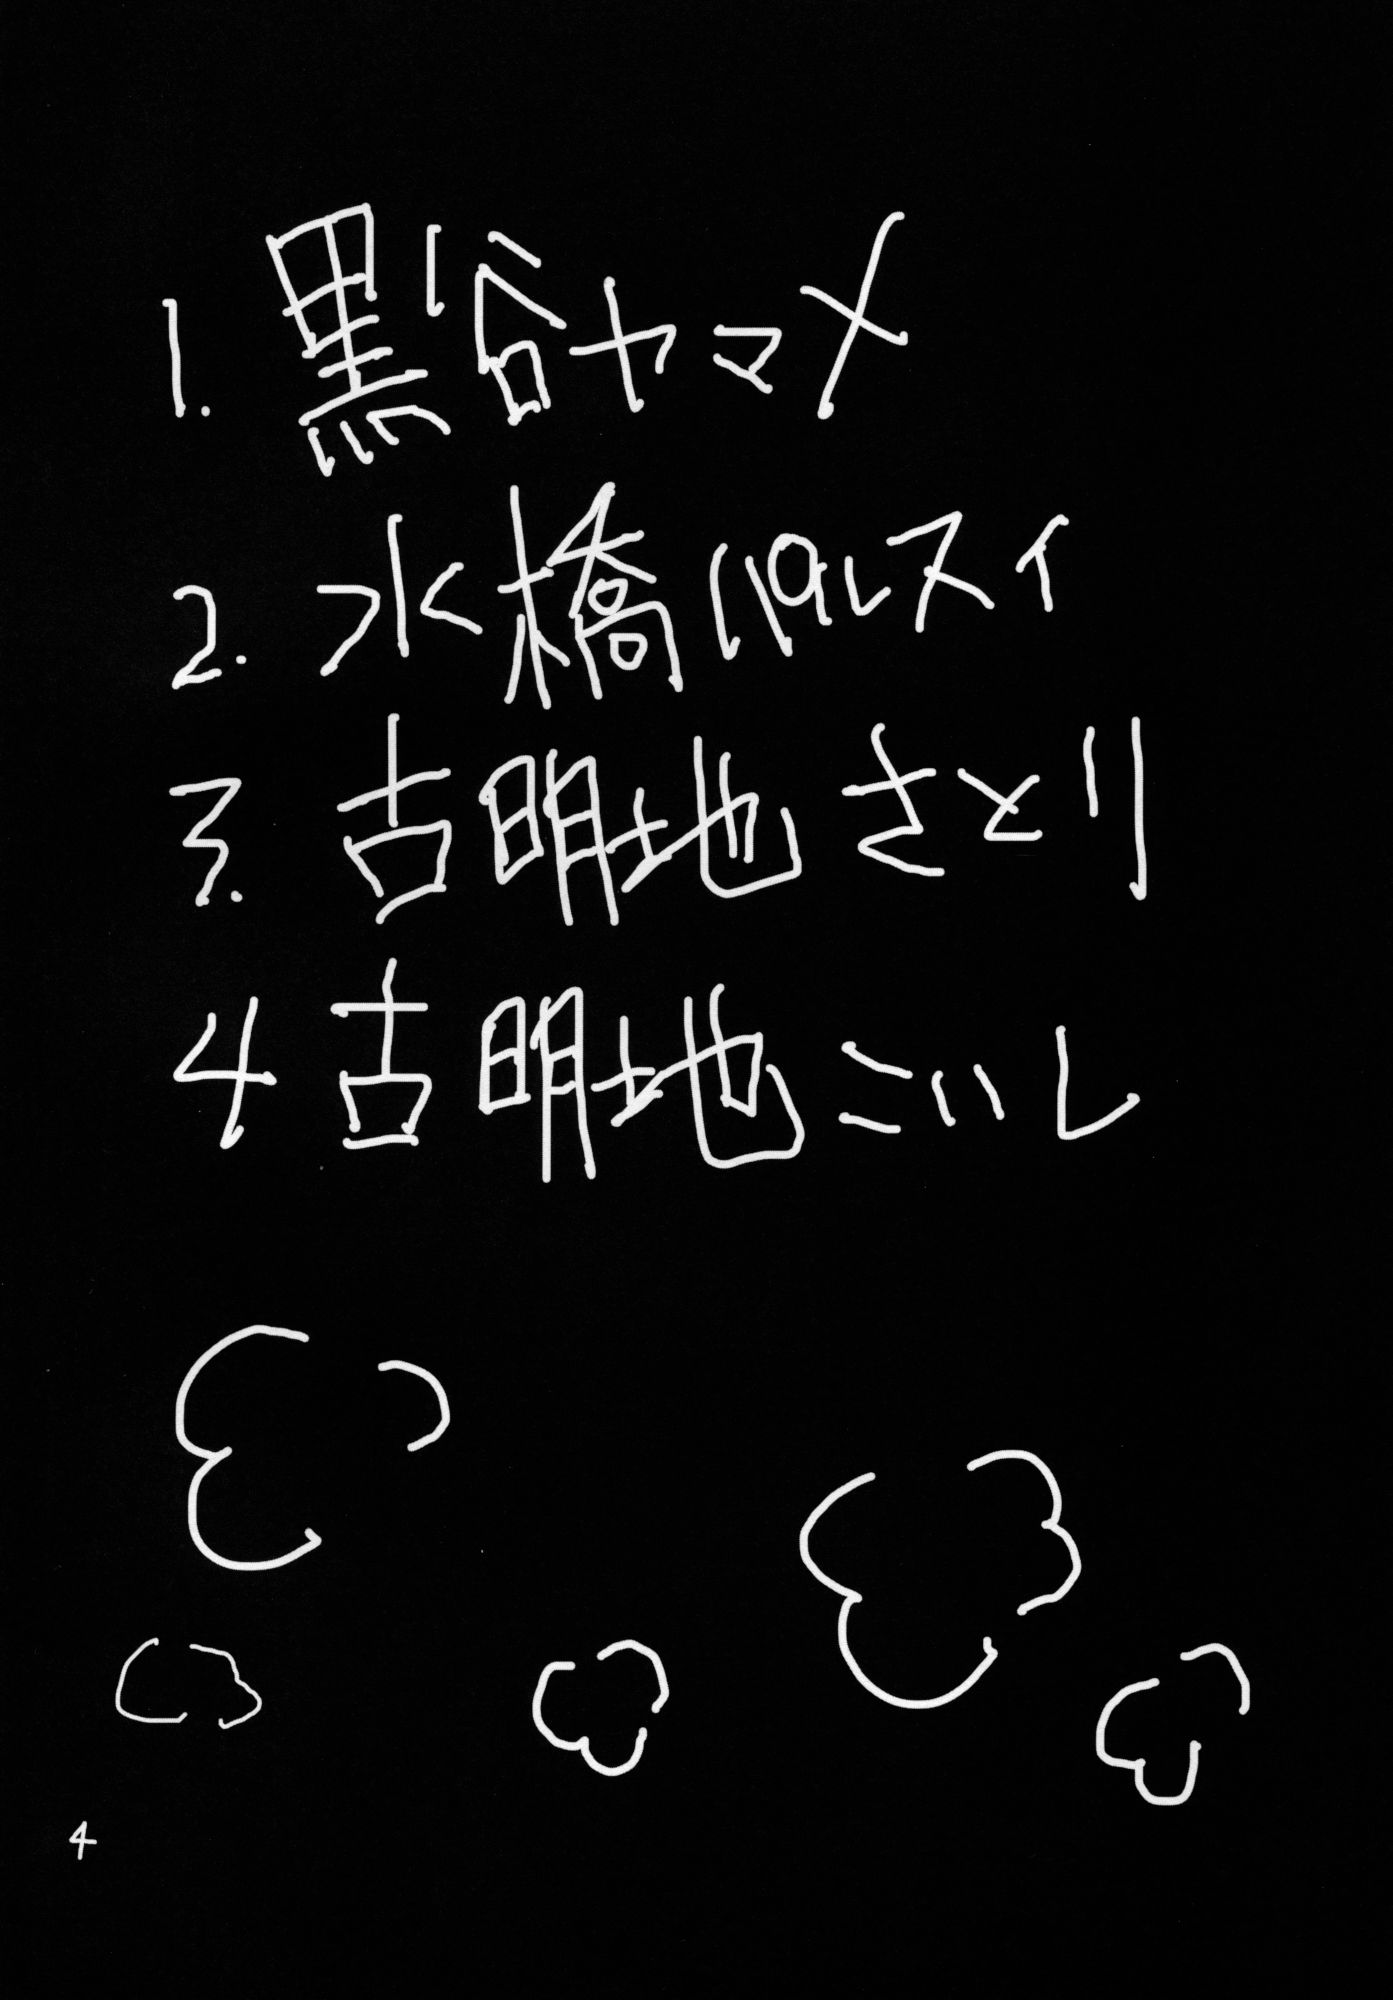 1. 黒谷ヤマメ
2. 水橋パルスィ
3. 古明地さとり
4 古明地こいし
4